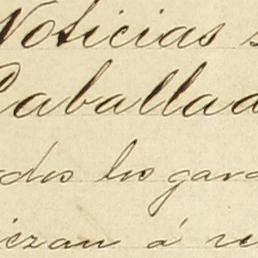 Noticias s
Caballad
dos los gara
iezan á re